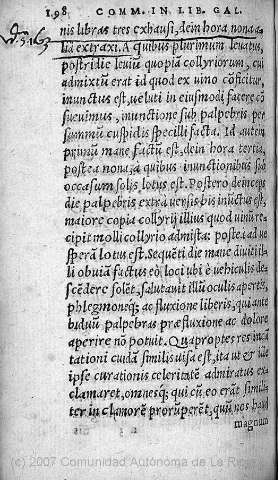 198. COMM. IN LIB. GAL.
nis libras tres exhausi, dein hora nona a-
lia extraxi. A quibus plurimum leuatus,
postridie leuiũ quopia collyriorum, cui
admixtũ erat id quod ex uino cõficitur,
inunctus est, ueluti in eiusmodi facere cõ
sueuimus, inunctione sub palpebris per
summũ cuspidis specilli facta. Id autem
primũ mane factũ est, dein hora tertia,
postea nona, ia quibus inunctionibus sob
occasum solis lotus est. Postero deinceps
die palpebris extra uersis bis inũctus est,
maiore copia collyrij illius quod uinũ re-
cipit molli collyrio admista: postea ad ue
sperã lotus est. Sequẽti die manc diuerti il-
li obuiã factus eõ, loci ubi è uehiculis de-
scẽdere solẽt, salutauit illũ oculis apertis,
phlegmoneq; ac fluxione liberis, qui ante
biduũ palpebras præ fluxione ac dolore
aperire nõ potuit. Quapropter res incã
tationi cuidã similis uisa est, ita ut &
ipse curationis celeritatẽ admiratus ex
clamaret, omnesq; qui cũ eo erãt simili
ter in clamorẽ proruperẽt, qui nos hau
magnum
(c) 2007 Comunidad Autónoma de La Rioja